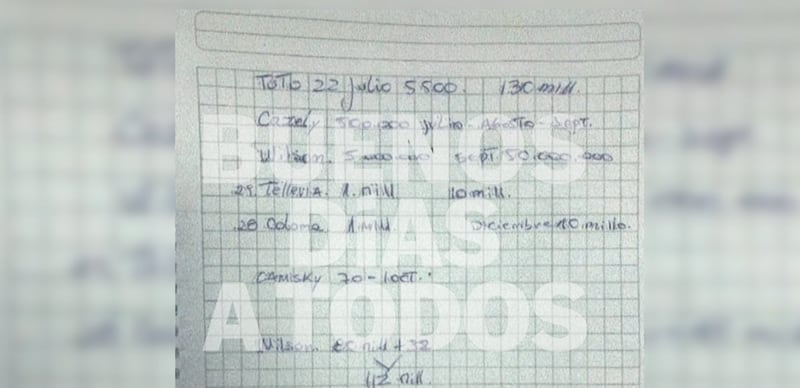 ToTo 22 julio 5500. 130 mill.
Cazely 500.000 julio - Agosto - Sept.
Wilson. 5.000.000 Sept 50.000.000
29. Tellería. 1. mill 10 mill.
28 Coloma. 1 mill. Diciembre 10 millo.
CAMISKY 70 - 1 oct.
Wilson. mill + 32
112 mill.
BUENOS
DÍAS
A TODOS